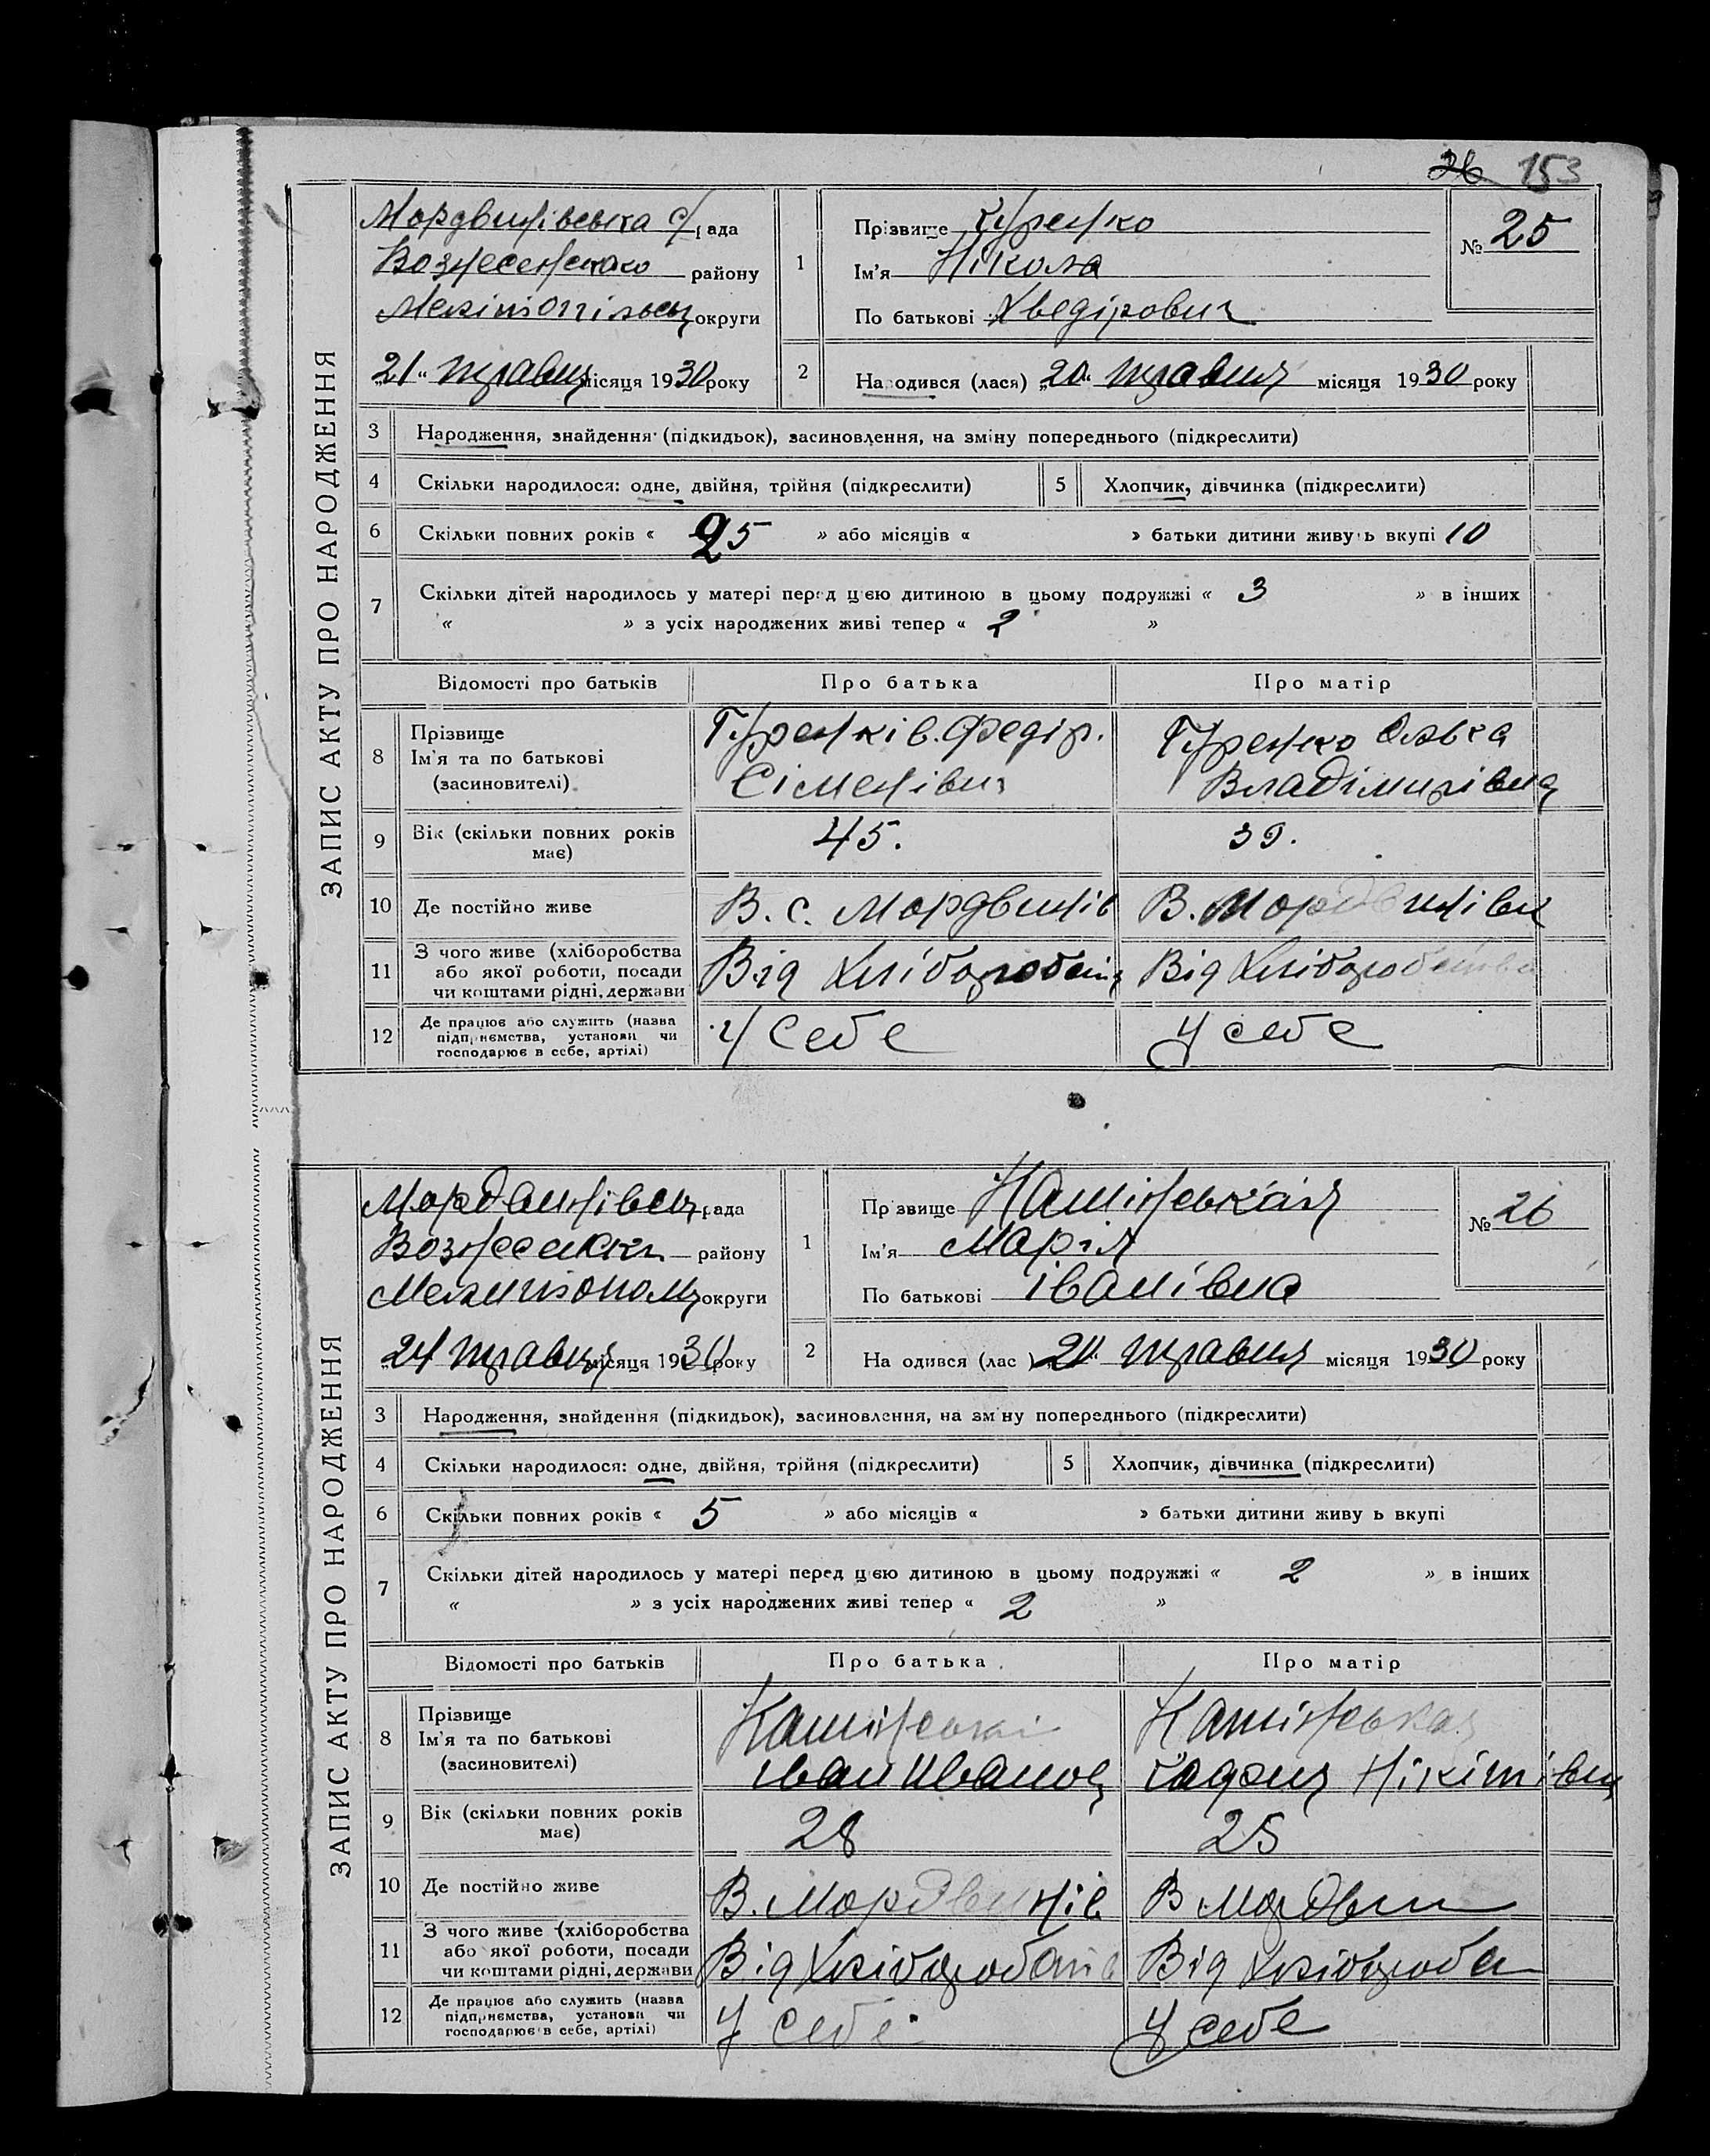 26 153
ЗАПИС АКТУ ПРО НАРОДЖЕННЯ
Мордвинівська с/рада
Вознесенского району
Мелітопільськ округи
„21“ травня місяця 1930 року
1
Прізвище Гуренко
Ім'я Нікола
По батькові Хведірович
№ 25
2
Народився (лася) „20“ травня місяця 1930 року
3 Народження, знайдення (підкидьок), засиновлення, на зміну попереднього (підкреслити)
4 Скільки народилося: одне, двійня, трійня (підкреслити) 5 Хлопчик, дівчинка (підкреслити)
6 Скільки повних років « 25 » або місяців « » батьки дитини живуть вкупі 10
7 Скільки дітей народилось у матері перед цією дитиною в цьому подружжі « 3 » в інших
« » з усіх народжених живі тепер « 2 »
Відомості про батьків Про батька Про матір
8 Прізвище
Ім'я та по батькові
(засновителі)
Гуренків. Федір.
Сіменівич
Гуренко Олька
Владімирівна
9 Вік (скільки повних років має) 45. 39.
10 Де постійно живе В. с. Мордвинів В. Мордвинівк
11 З чого живе (хліборобства
або якої роботи, посади
чи коштами рідні, держави
Від Хліборобств Від Хліборобства
12 Де працює або служить (назва
підприємства, установи чи
господарює в себе, артілі)
У себе У себе
ЗАПИС АКТУ ПРО НАРОДЖЕННЯ
Мордвинівськ рада
Вознесенск району
Мелитопол округи
„21 травня місяця 1930 року
1
Прізвище Камінськая
Ім'я Марія
По батькові Іванівна
№ 26
2
Народився (лас ) „20“ травня місяця 1930 року
3 Народження, знайдення (підкидьок), засиновлення, на зміну попереднього (підкреслити)
4 Скільки народилося: одне, двійня, трійня (підкреслити) 5 Хлопчик, дівчинка (підкреслити)
6 Скільки повних років « 5 » або місяців « » батьки дитини живуть вкупі
7 Скільки дітей народилось у матері перед цією дитиною в цьому подружжі « 2 » в інших
« » з усіх народжених живі тепер « 2 »
Відомості про батьків Про батька Про матір
8 Прізвище
Ім'я та по батькові
(засиновителі)
Камінські
Іван Иванов
Камінськая
Нікітівн
9 Вік (скільки повних років має) 28 25
10 Де постійно живе В. Мордвинів В Мордвин
11 З чого живе (хліборобства
або якої роботи, посади
чи коштами рідні, держави
Від Хліборобств Від Хлібороб
12 Де працює або служить (назва
підприємства, установи чи
господарює в себе, артілі)
У себе У себе